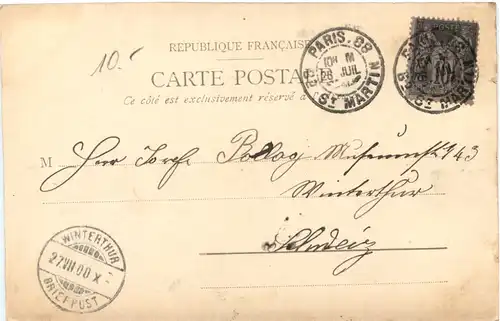 10.-
RÉPUBLIQUE FRANÇAISE
CARTE POSTA
Ce côté est exclusivement réservé à
PARIS. 68
JUIL
Bd ST MARTIN
10
M Herr Bollag Museumstr. 43
Winterthur
Schweiz
WINTERTHUR
27.VII.00.X
BRIEFPUST